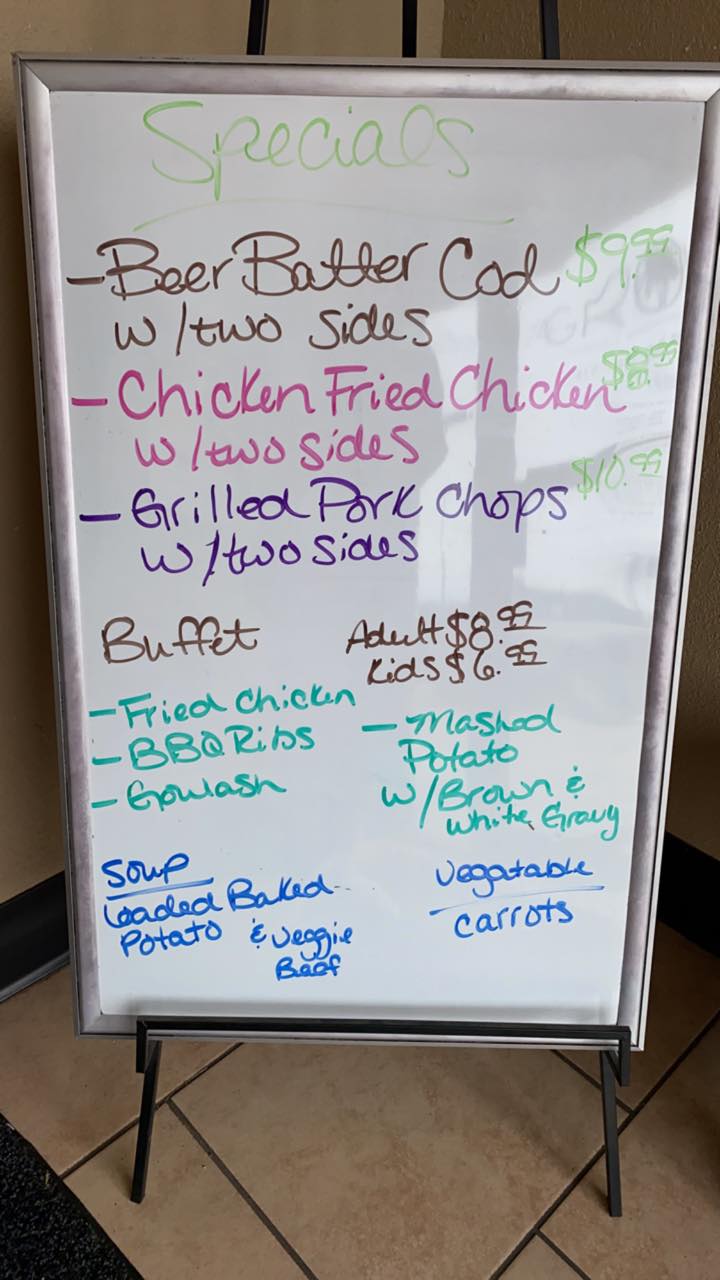 Specials
- Beer Batter Cod $9.99
w/two sides
- Chicken Fried Chicken $8.99
w/two sides
- Grilled Pork Chops $10.99
w/two sides
Buffet
Adult $8.99
Kids $6.99
- Fried Chicken
- BBQ Ribs
- Gowlash
- Mashed
Potato
w/Brown &
white Gravy
Soup
Loaded Baked
Potato & Veggie
Beef
Vegatable
carrots